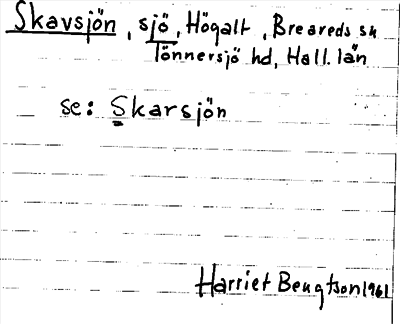 Skavsjön, sjö, Högalt, Breareds sn
Tönnersjö hd, Hall. län
se: Skarsjön
Harriet Bengtson 1961